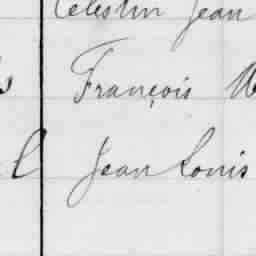 Celestin Jean
François
Jean Louis